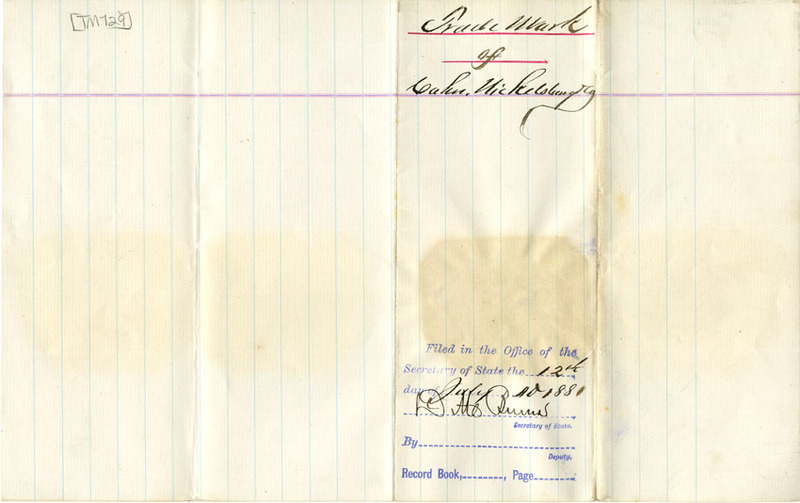 [TM 729]
Trade Mark
of
Cahn, Nickelsburg & Co
Filed in the Office of the
Secretary of State the 12th
day of July AD 1881
Secretary of State.
By
Deputy.
Record Book, , Page